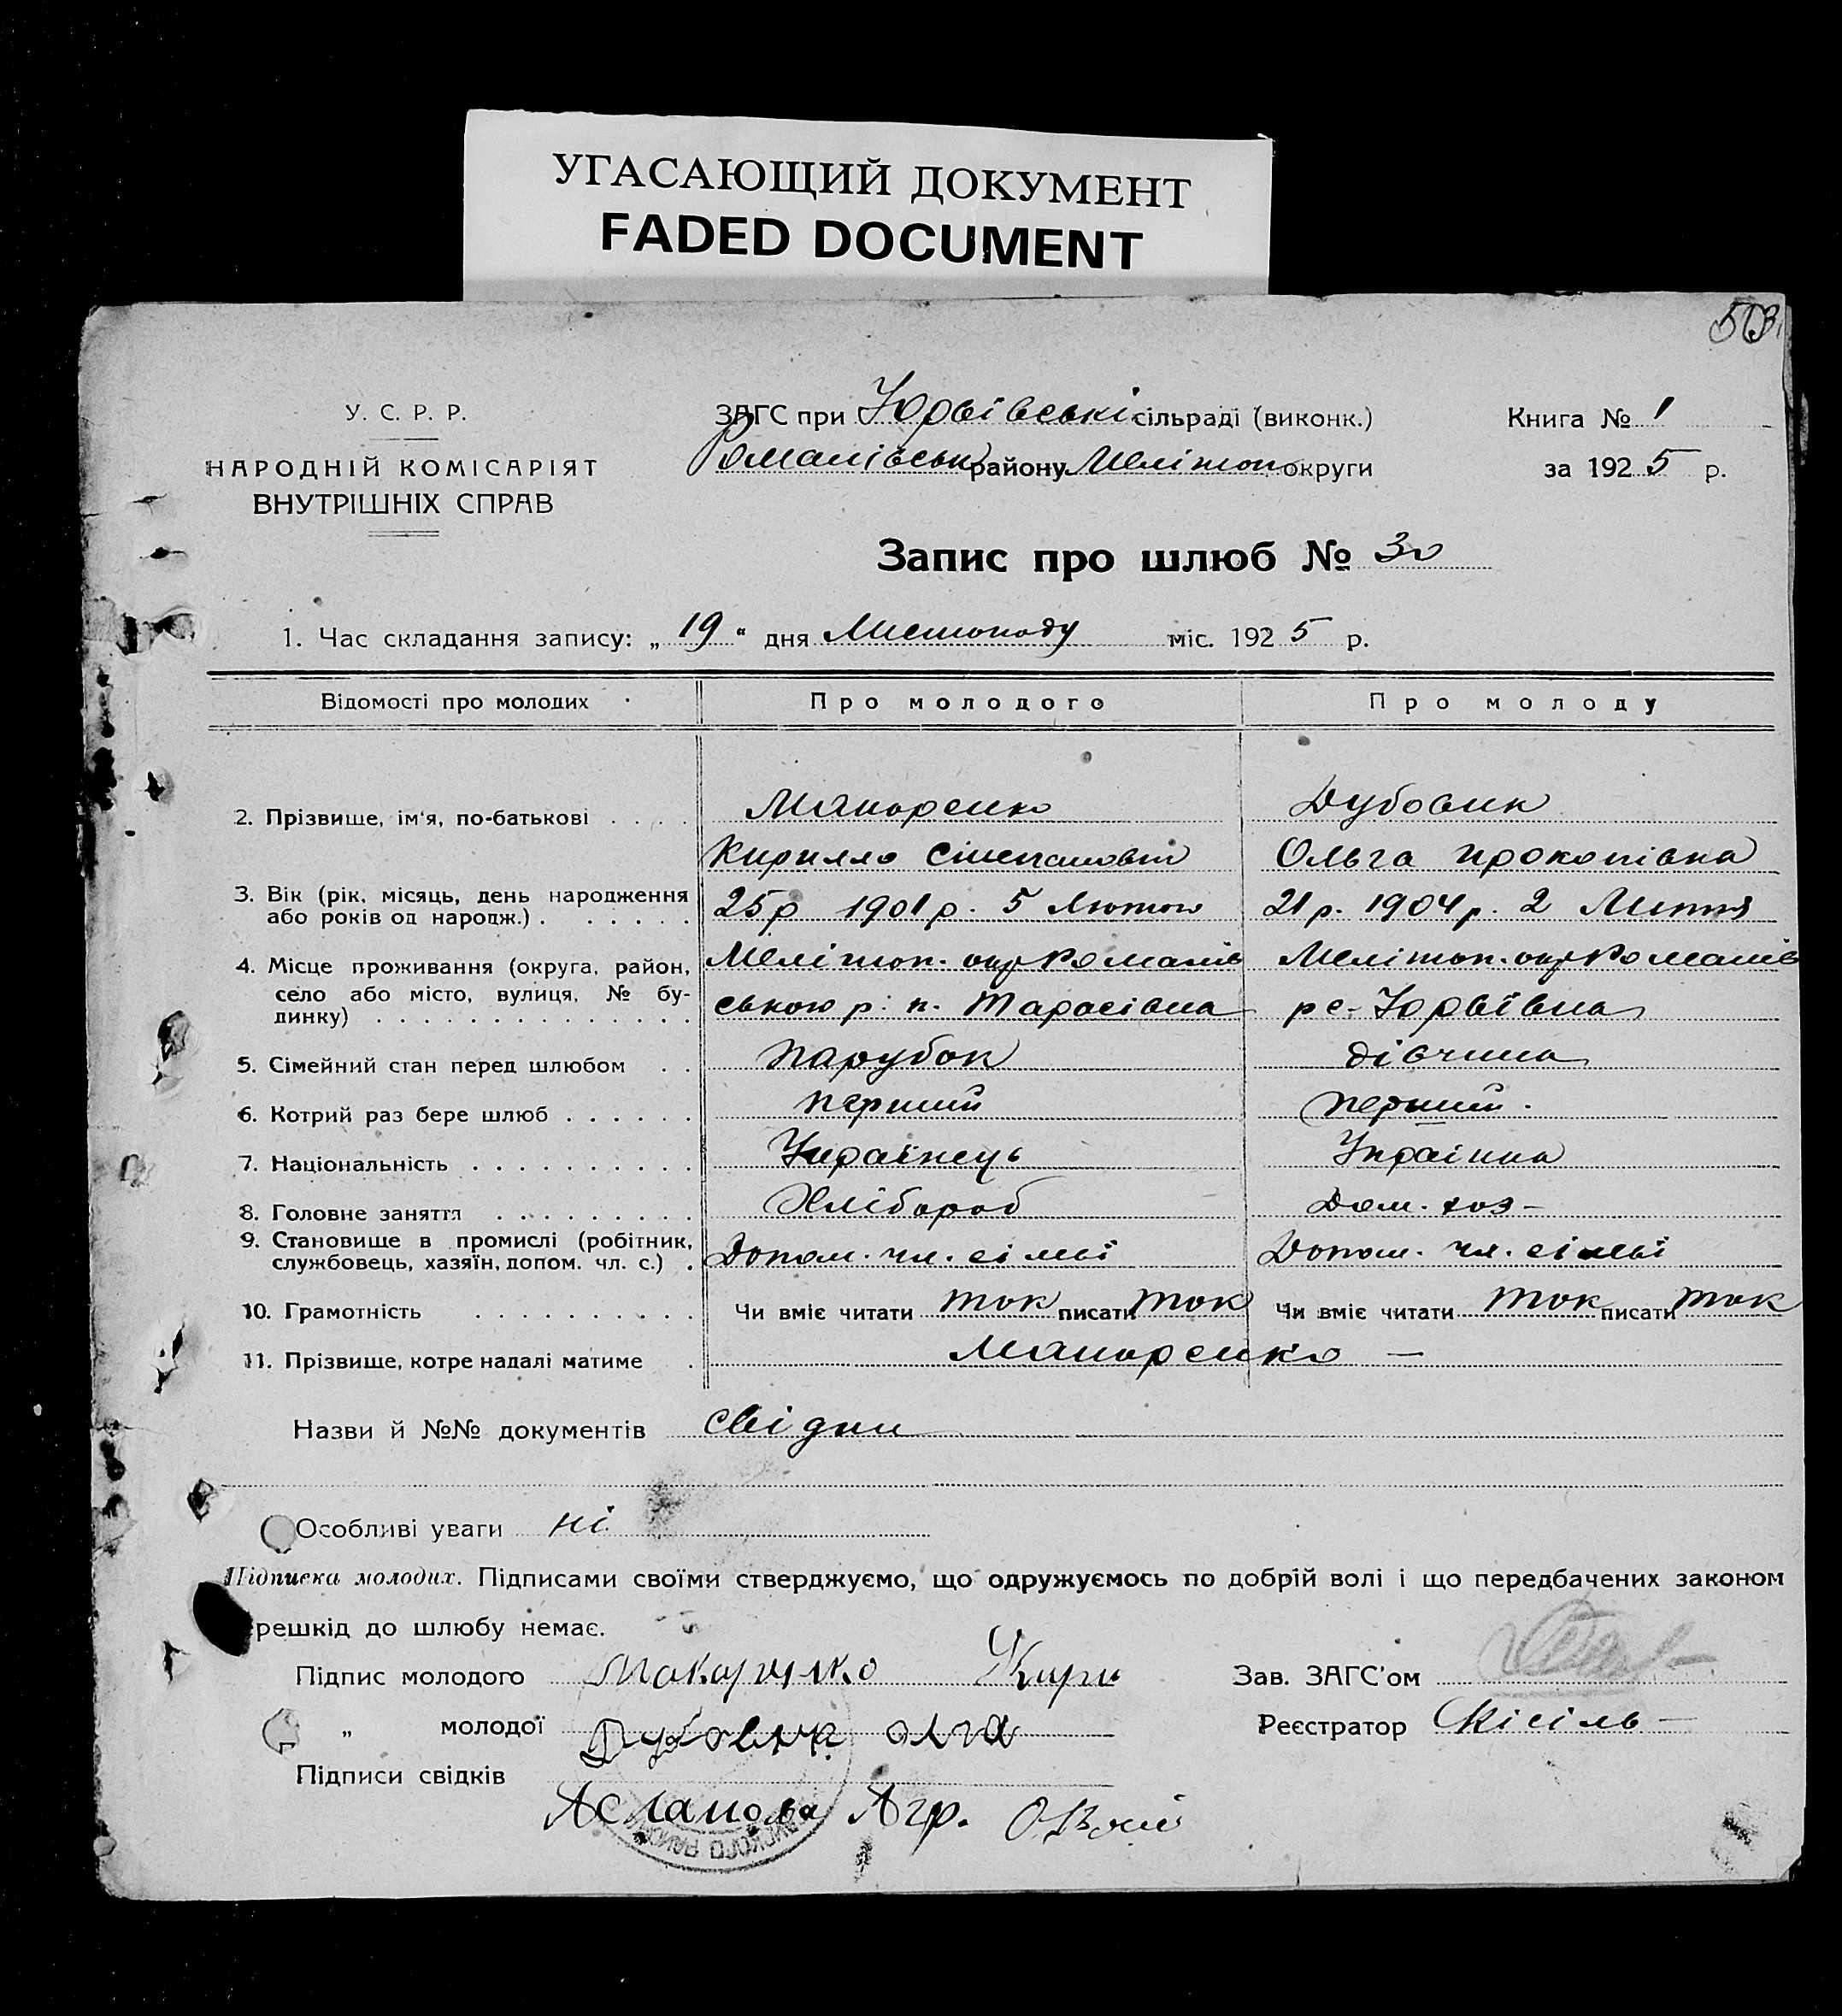 УГАСАЮЩИЙ ДОКУМЕНТ
FADED DOCUMENT
503
У. С. Р. Р.
НАРОДНІЙ КОМІСАРІЯТ
ВНУТРІШНІХ СПРАВ
ЗАГС при Юріївські сільраді (виконк.)
Романівськ району Мелітоп округи
Книга № 1
за 1925 р.
Запис про шлюб № 30
1. Час складання запису: „ 19 “ дня Листопаду міс. 1925 р.
Відомості про молодих
Про молодого
Про молоду
2. Прізвище, ім'я, по-батькові . . . . Макаренко Дубовик
Кирилло Степанович Ольга Прокопівна
3. Вік (рік, місяць, день народження
або років од народж.) . . . . . . . 25р 1901р. 5 Лютого 21р. 1904р. 2 Липня
4. Місце проживання (округа, район, Мелітоп. окр Романів Мелітоп. окр Романів
село або місто, вулиця, № бу-
динку) . . . . . . . . . . . . . ською р. п. Тарасівка р с. Юріївка
5. Сімейний стан перед шлюбом . . парубок дівчина
6. Котрий раз бере шлюб . . . . . . перший перший.
7. Національність . . . . . . . . . . Українець Украінка
8. Головне заняття . . . . . . . . . Хлібороб Дом. хоз-
9. Становище в промислі (робітник,
службовець, хазяїн, допом. чл. с.) . Допом. чл. сімьї Допом. чл. сімьї
10. Грамотність . . . . . . . . . . Чи вміє читати так писати так Чи вміє читати так писати так
11. Прізвище, котре надалі матиме . Макаренко —
Назви й №№ документів свідки
Особливі уваги ні
Підписка молодих. Підписами своїми стверджуємо, що одружуємось по добрій волі і що передбачених законом
решкід до шлюбу немає.
Підпис молодого Макаренко Кири
Зав. ЗАГС'ом
„ молодої Дубовик олга
Реєстратор Кісіль
Підписи свідків
Асланова Агр.